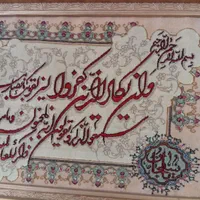 بسم الله الرحمن الرحیم
وان یکاد الذین کفروا لیزلقونک بابصارهم
لما سمعوا الذکر و یقولون انه لمجنون وما هو
الا ذکر للعالمین